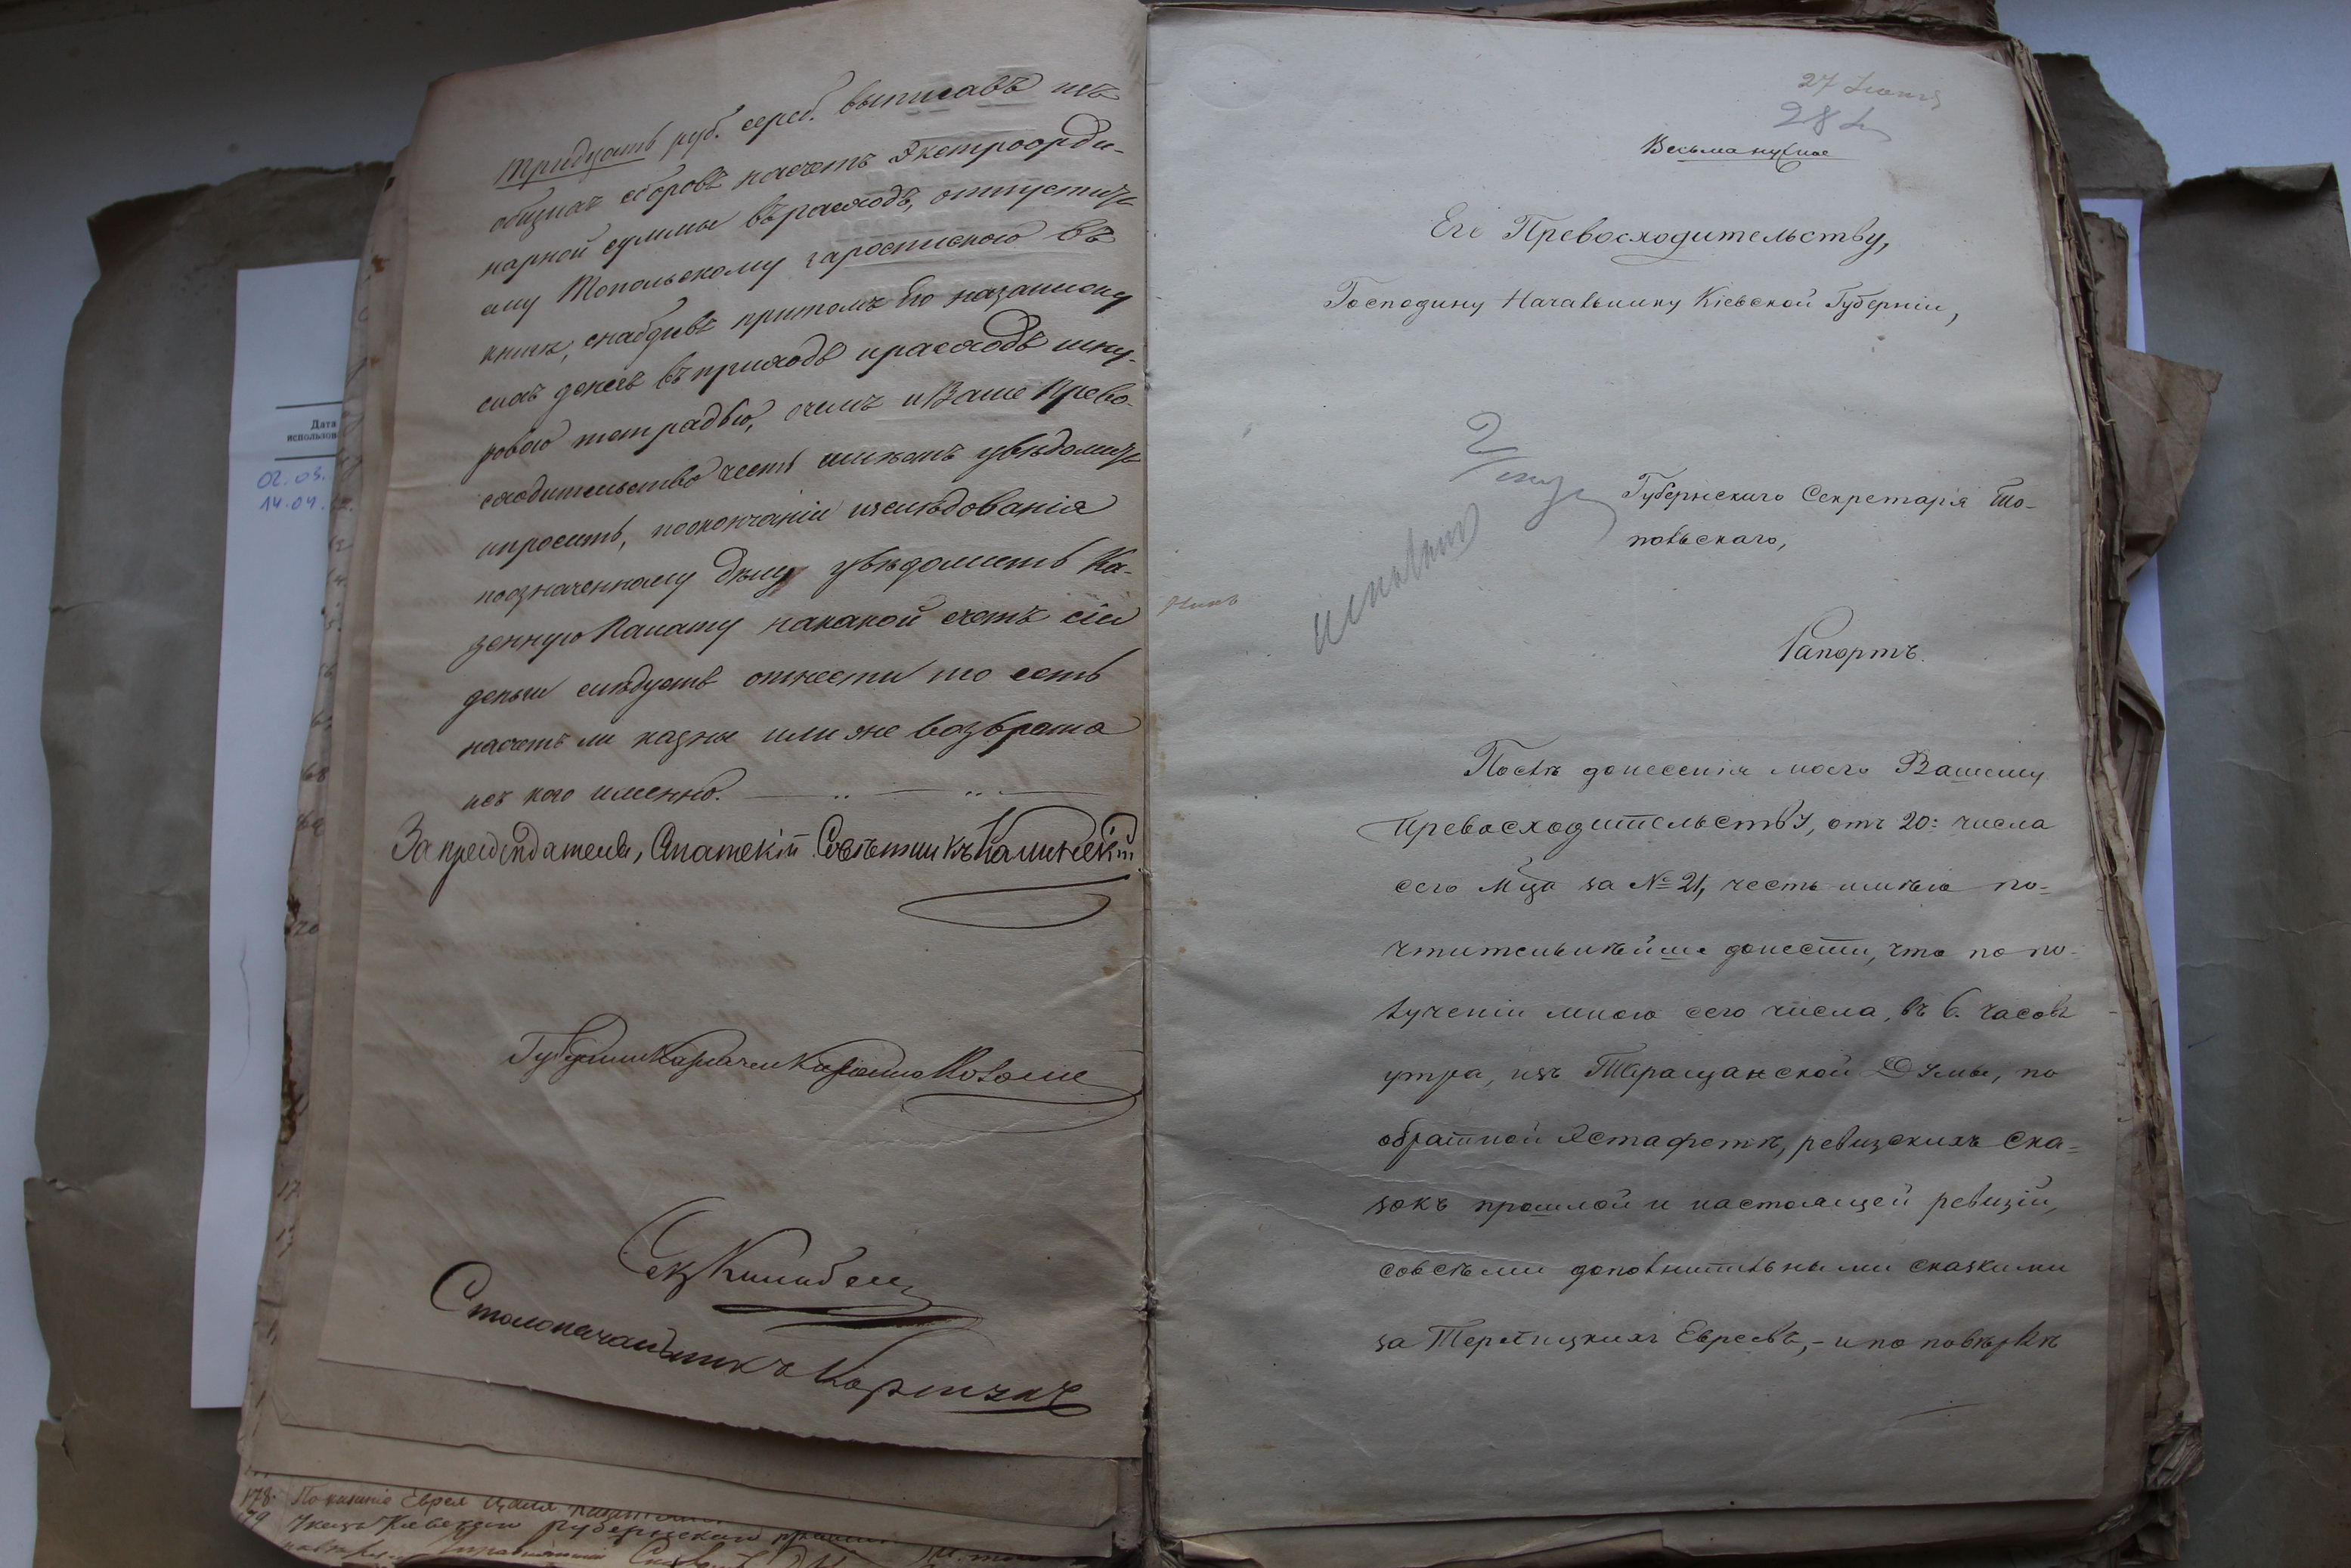 тридцать руб. сереб. выписавъ изъ
общихъ сборовъ насчетъ Экстроорди-
нарной суммы въ расходъ, отпустить
ему Топольскому гаростиского въ
книгъ, снабдивъ притомъ Его на записку
сихъ денегъ въ приходъ и расходъ шну-
ровою тетрадью, о чемъ и Ваше Прево-
сходительство честь имѣетъ увѣдомить
и просить, по окончаніи изслѣдованія
по означенному дѣлу увѣдомить Ка-
зенную Палату на какой счетъ сіи
деньги слѣдуетъ отнести то есть
насчетъ ли казны или же возврата
изъ кого именно.
За предсѣдателя, Статскій Совѣтникъ Калинскій
Губернскій Казначей
Сек.
Столоначальникъ
178. Показаніе Еврея
79 Указъ Кіевскаго Губернскаго правленія
Дата
использов
02.03.
14.04.
27 Іюня
28
Весьма нужное
Его Превосходительству,
Господину Начальнику Кіевской Губерніи,
Губернскаго Секретаря То-
польскаго,
Рапортъ.
Послѣ донесенія моего Вашему
Превосходительству, отъ 20: числа
сего Мца за № 21, честь имѣю по-
чтительнѣйше донести, что по по-
лученіи мною сего числа, въ 6. часовъ
утра, изъ Таращанской Думы, по
обратной Эстафетѣ, ревизскихъ ска-
зокъ прошлой и настоящей ревизіи,
со всѣми дополнительными сказками
за Терлицкихъ Евреевъ, - и по повѣркѣ